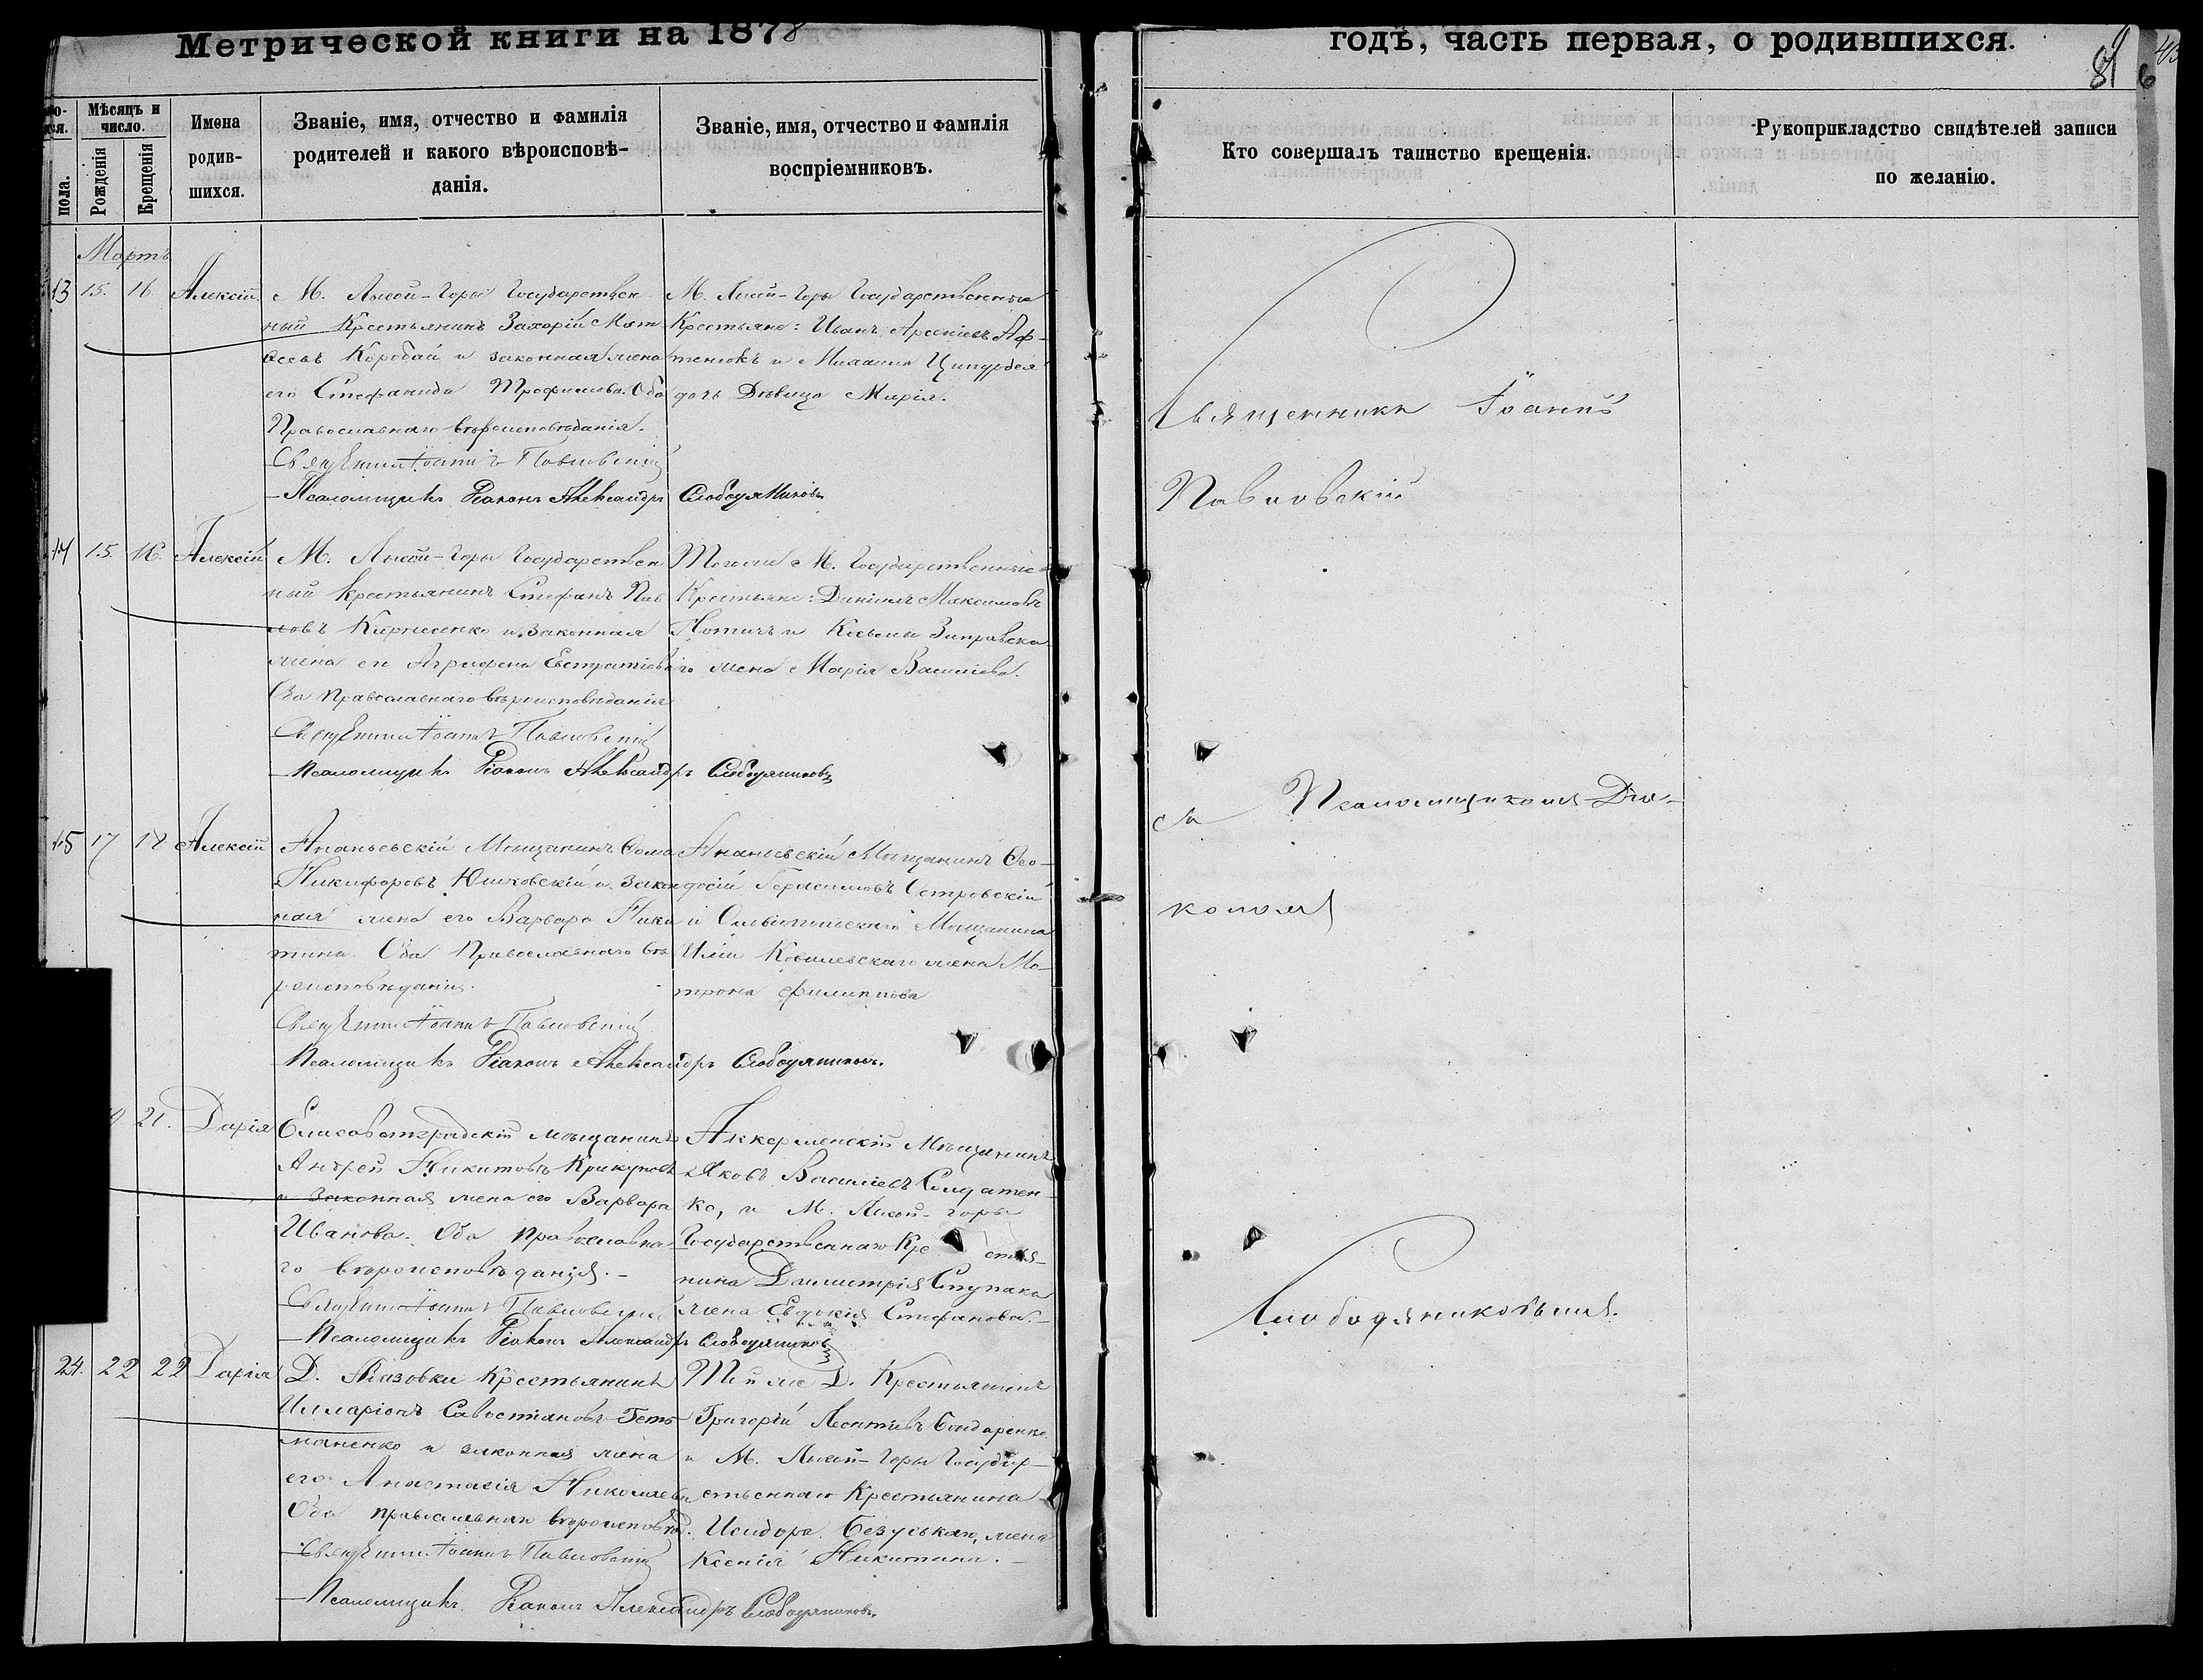 Метрической книги на 1878
годъ, часть первая, о родившихся.
81 6
пола.
Мѣсяцъ и число.
Рожденія
Крещенія
Имена родив-
шихся.
Званіе, имя, отчество и фамилія
родителей и какого вѣроисповѣ-
данія.
Званіе, имя, отчество и фамилія
воспріемниковъ.
Кто совершалъ таинство крещенія.
Рукоприкладство свидѣтелей записи
по желанію.
Мартъ
13 15. 16 Алексій.
М. Лысой-Горы Государствен
ный Крестьянинъ Захарій Мат
оеевъ Коробай и законная жена
его Стефанида Трофимова. Оба
Православнаго вѣроисповѣданія.
Священникъ Іоаннъ Павловскій
Псаломщикъ Діаконъ Александръ Слободяниковъ
М. Лысой-Горы Государственные
Крестьяне: Иванъ Арсеніевъ Аф-
тенюкъ и Михаила Ципурдея
дочь Дѣвица Марія.
14 15. 16. Алексій
М. Лысой-Горы Государствен
ный Крестьянинъ Стефанъ Пав
ловъ Кирнесенко и законная
жена его Агрифена Евстратіова
Оба Православнаго вѣроисповѣданія
Священникъ Іоаннъ Павловскій
Псаломщикъ Діаконъ Александръ Слободяниковъ
Тогоже М. Государственные
Крестьяне: Даніилъ Максимовъ
и Козьмы
го жена Марія Василіева.
15 17 18 Алексій
Ананьевскій Мѣщанинъ Ѳома
Никифоровъ Юшковскій и закон
ная жена его Варвара Ники
тина. Оба Православнаго вѣ
роисповѣданія.
Священникъ Іоаннъ Павловскій
Псаломщикъ Діаконъ Александръ Слободяниковъ.
Ананьевскій Мѣщанинъ Ѳео-
досій Герасимовъ Островскій
и Ольвіопольскаго Мѣщанина
Иліи Ковалевскаго жена Ма-
трона Филиппова
21. Дарія
Елисаветградскій мѣщанинъ
Андрей Никитовъ Крикуновъ
и законная жена его Варвара
Иванова. Оба православна-
го вѣроисповѣданія.-
Священникъ Іоаннъ Павловскій
Псаломщикъ Діаконъ Александръ Слободяниковъ
Аккерменскій Мѣщанинъ
Яковъ Василіевъ Солдатен-
ко, и М. Лысой-Горы
Государственнаго Крестья-
нина Димитрія Ступака
жена Евдокія Стефанова.-
24. 22 22 Дарія
Д. Лазовки Крестьянинъ
Илларіонъ Савостіановъ Гет-
маненко и законная жена
его Анастасія Николаева
Оба православнаго вѣроисповѣд.
Священникъ Іоаннъ Павловскій
Псаломщикъ Діаконъ Александръ Слободяниковъ.
Той же Д. Крестьянинъ
Григорій Леонтіевъ Бондаренко
и М. Лысой-Горы Государ-
ственнаго Крестьянина
Исидора Безуськаго, жена
Ксенія Никитина.-
Священникъ Іоаннъ
Павловскій
съ Псаломщикомъ Діа-
кономъ
Слободяниковымъ.